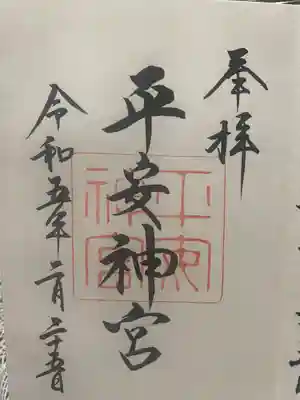 奉拝
平安神宮
令和五年二月二十五日
平安
神宮